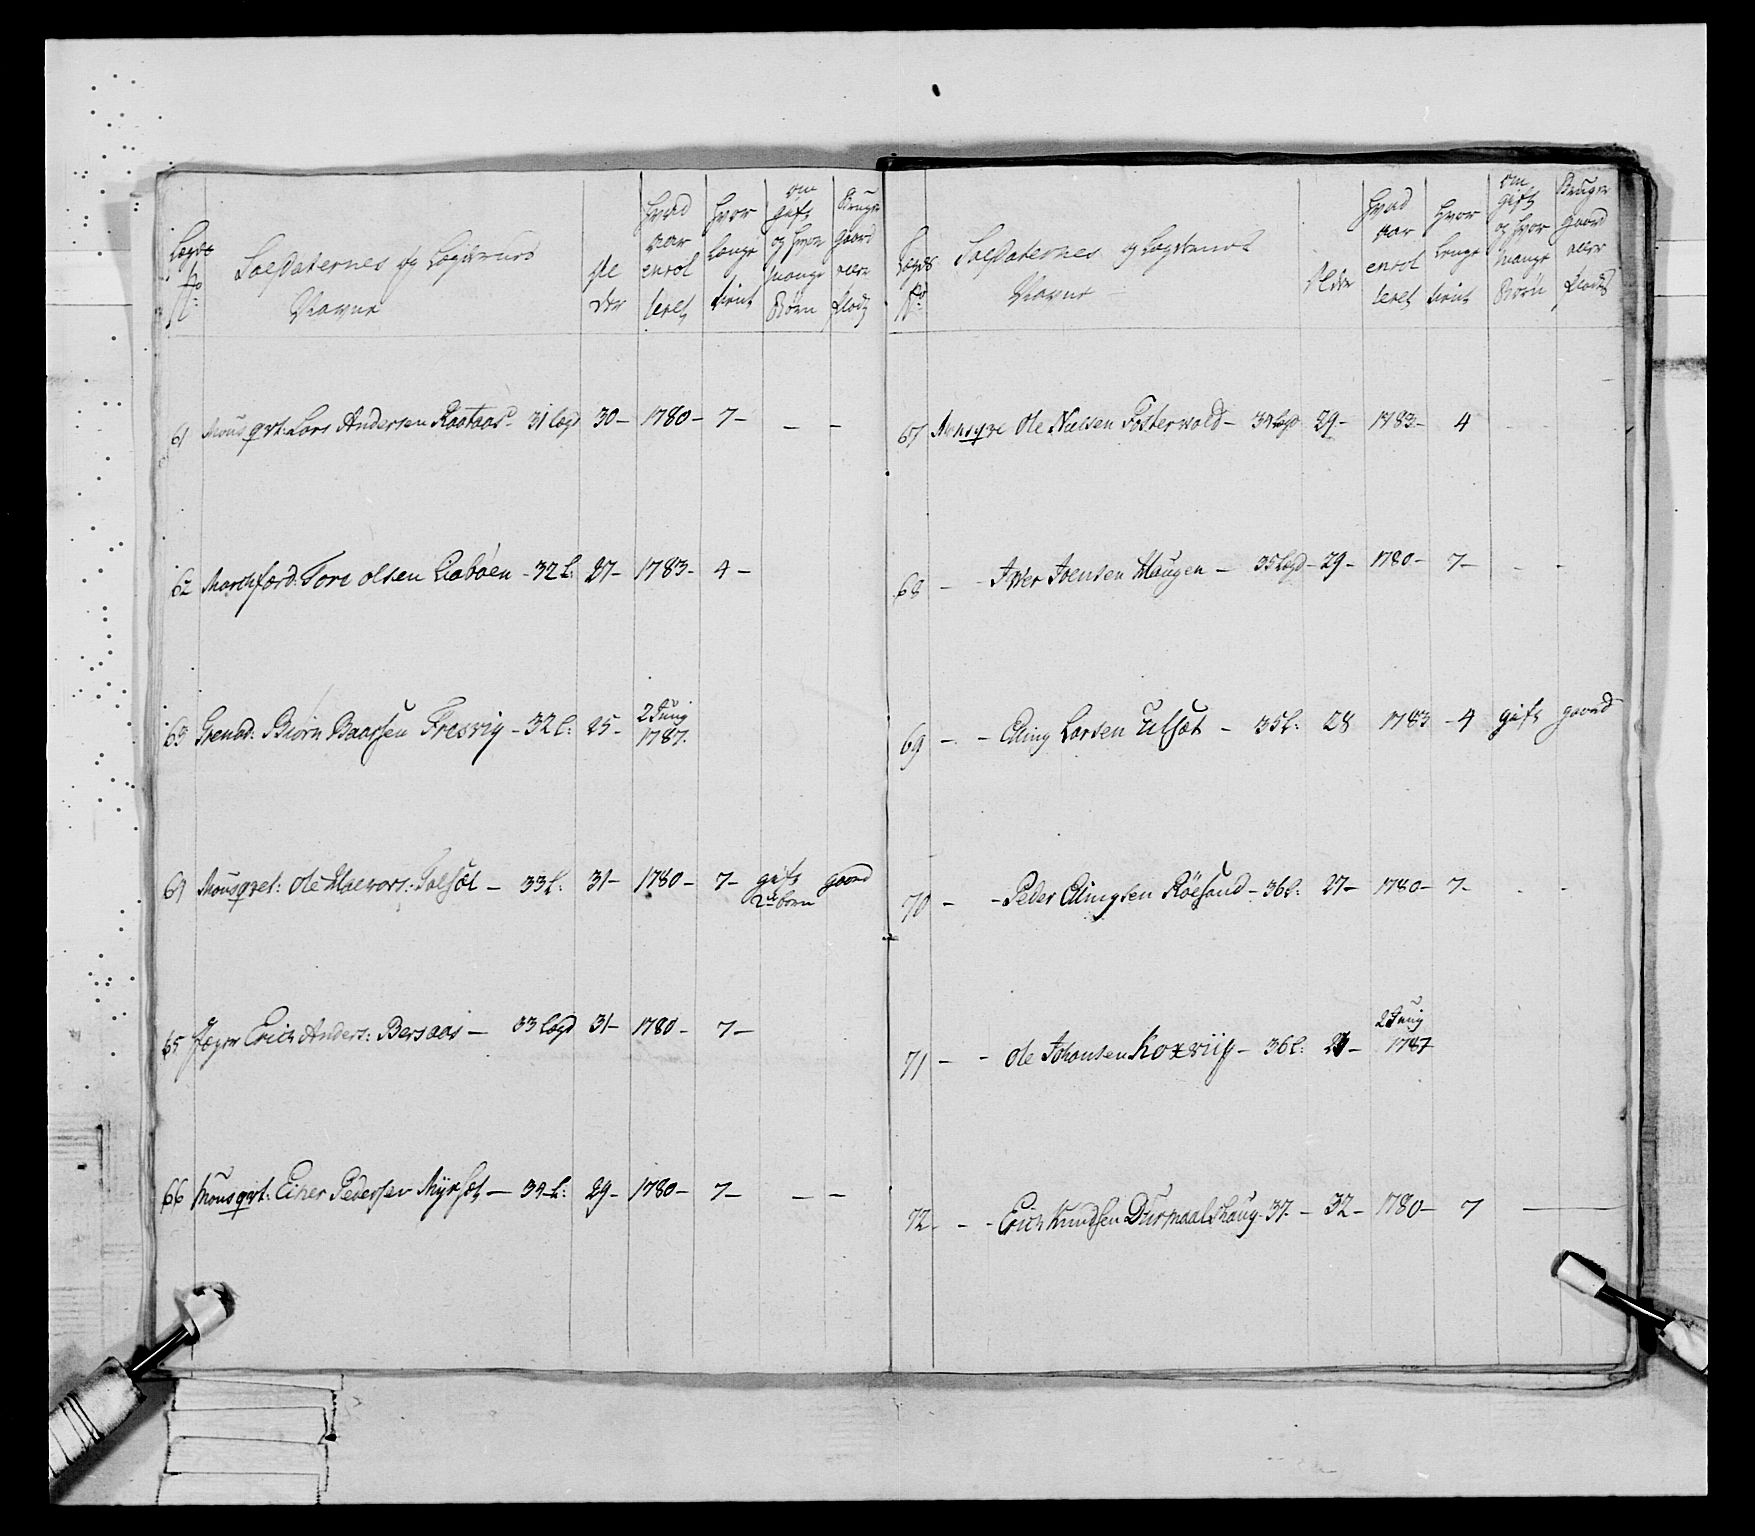 Lægde No: Soldaternes og Lægdenes Navne Alder hvad aar enrolleret hvor længe tient om gift og hvor mange Børn Bruger gaard eller Plads
61 Mousqvt: Lars Andersen Raataas - 31 Lægd 30 - 1780 - 7 - - -
62 Marchford: Tore Olsen Liabøen - 32 L: 27 - 1783 - 4 -
63 Grenad: Biørn Baarsen Fresvig - 32 L: 25 - 2 Junÿ 1787.
64 Mousqvet: Ole Halvors: - 33 L: 31 - 1780 - 7 - gift 2de børn gaard
65 Jæger Erich Anders: Bersaas - 33 Lægd 31 - 1780 - 7 -
66 Mousqvt: Einer Pedersen Myrsæt - 34 L: 29 - 1780 - 7 - - -
Lægds No: Soldaternes og Lægdenes Navne Alder hvad aar enrolleret hvor længe tient om gift og hvor mange Børn Bruger gaard eller Plads
67 Ole Nielsen Fosterwold - 34 Lægd 29 - 1783 - 4 - -
68 - Iver Joensen Haugen - 35 Lægd - 29 - 1780 - 7 - - -
69 - - Elling Larsen Ulsæt - 35 L: 28 1783 - 4 gift gaard
70 - - Peder Ellingsen Röesand - 36 L: 27 - 1780 - 7 - - -
71 - - Ole Johansen Koxviig - 36 L: - 2 Junÿ 1787
72 - - - Erich Knudsen Durmaalshaug - 37 - 32 - 1780 - 7 -